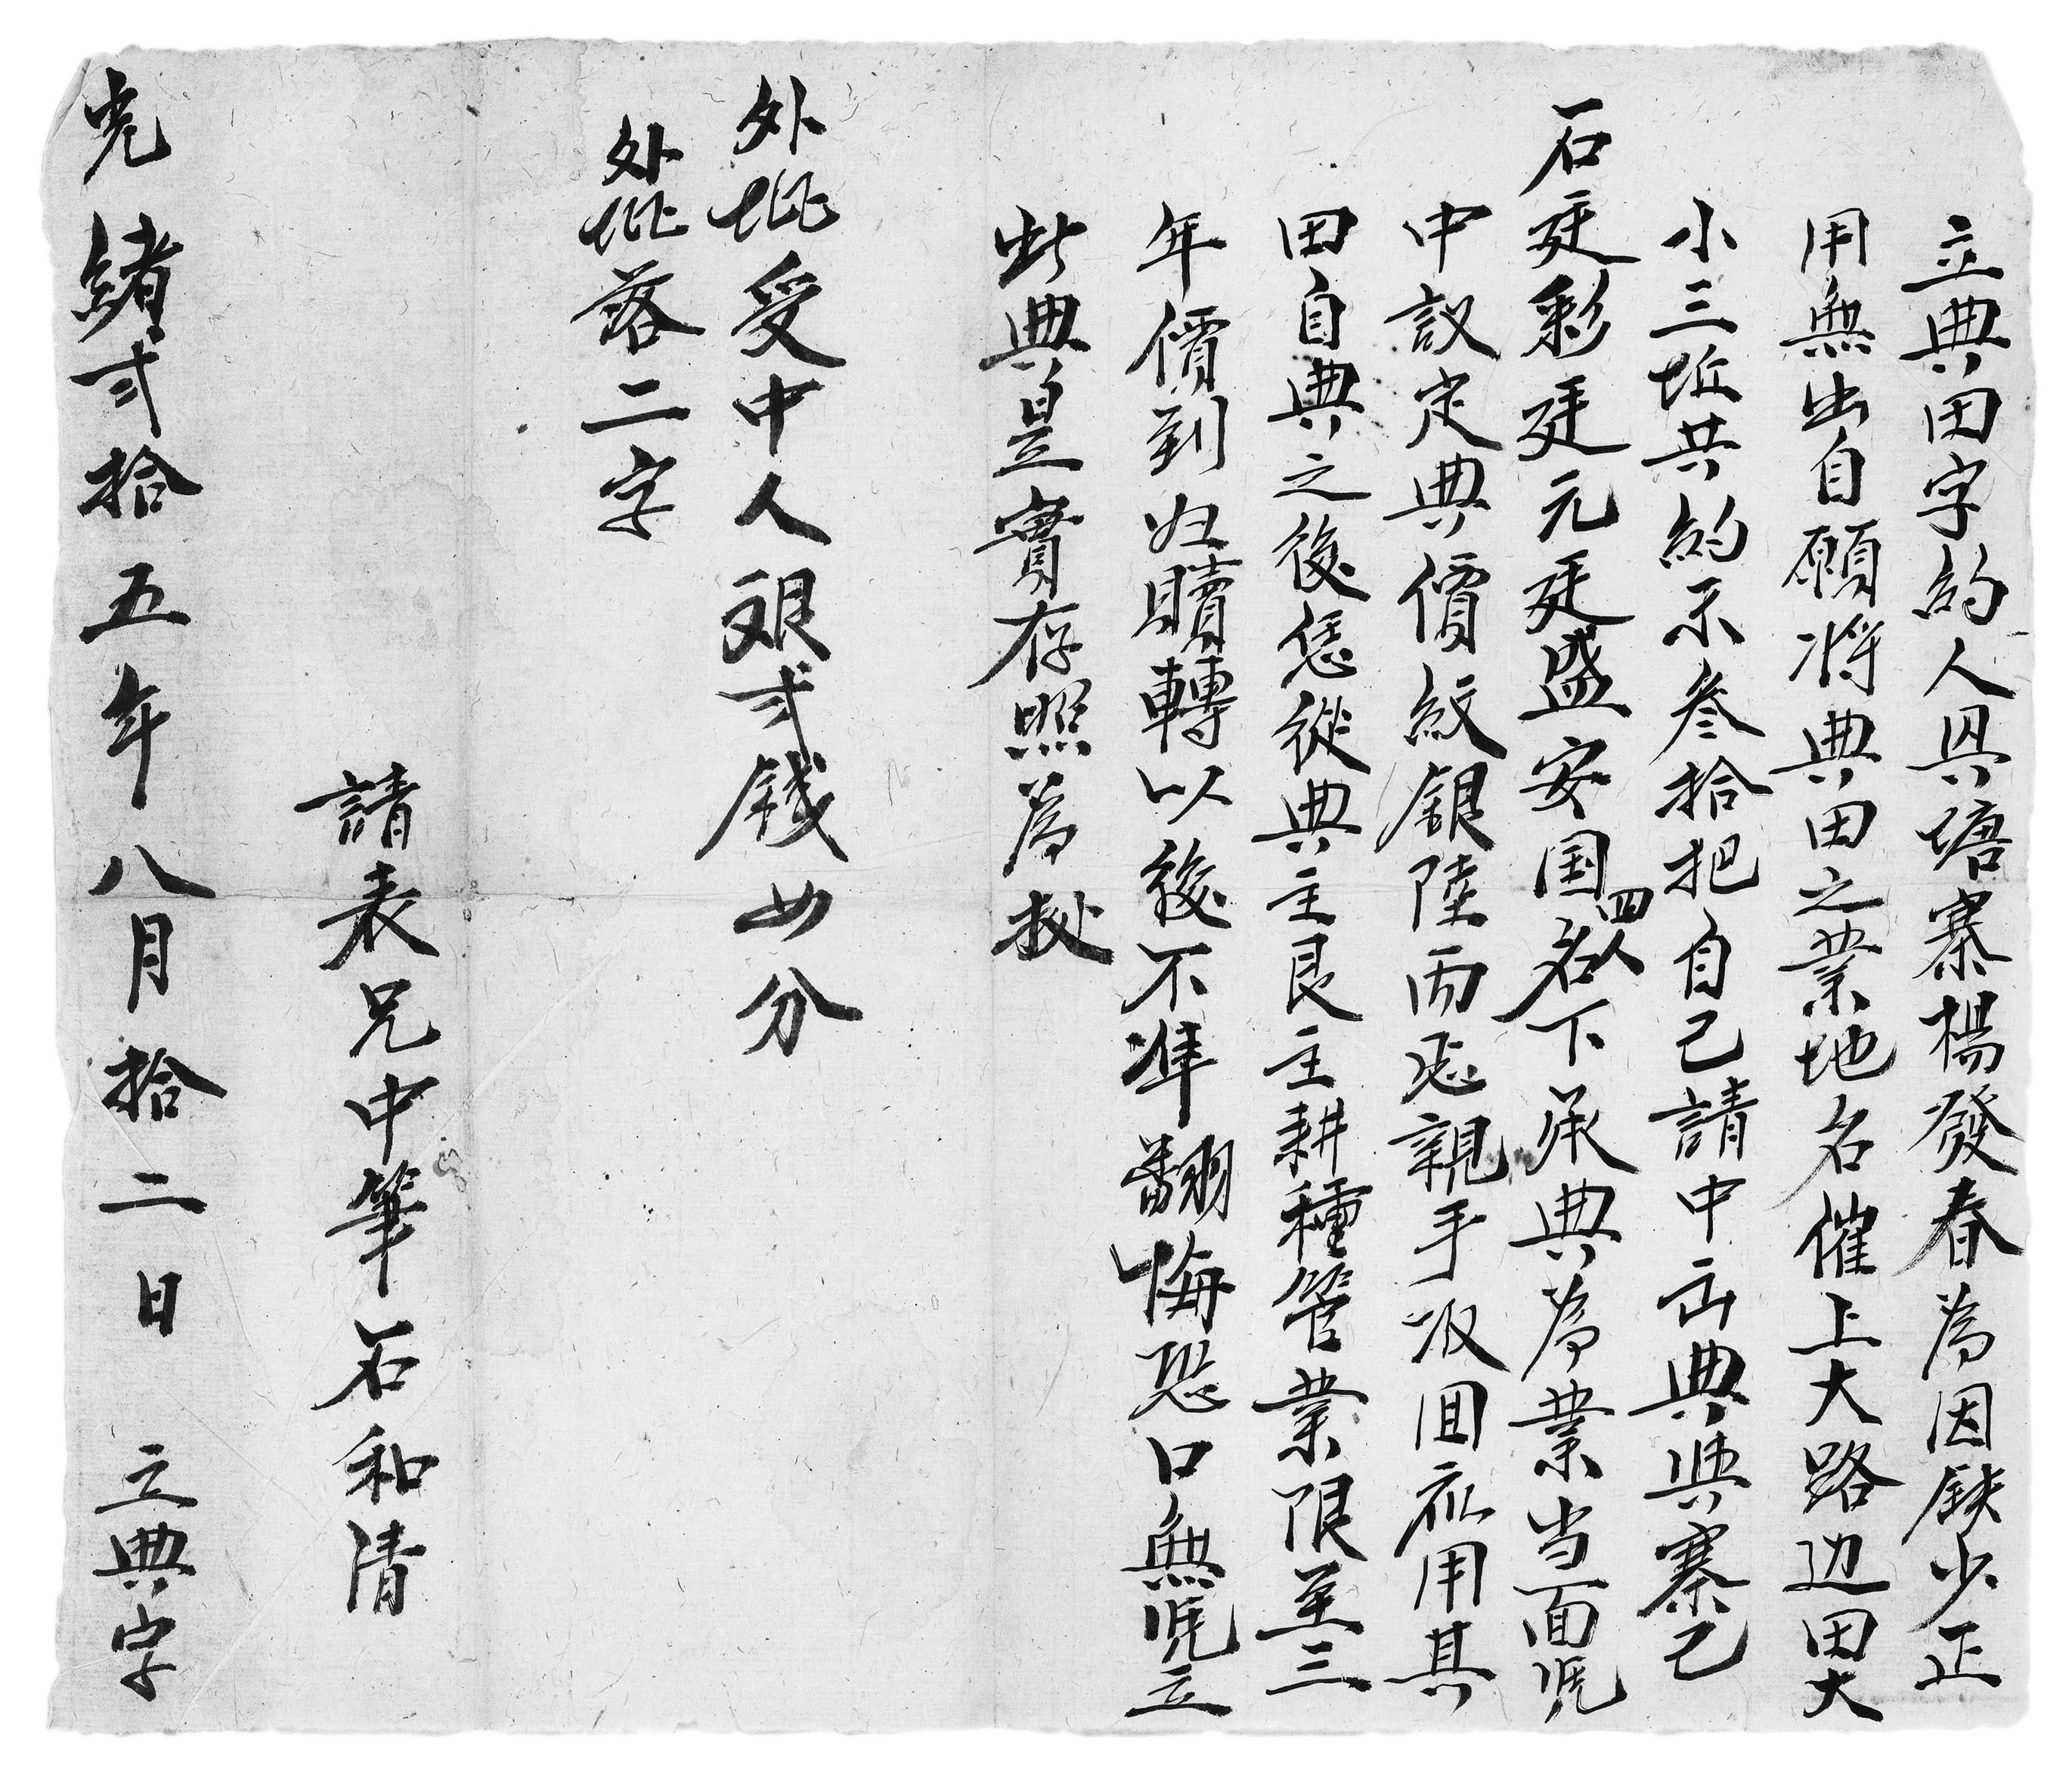 立典田字約人具塘寨楊發春為因缺少正
用無出自願將典田之業地名催上大路边田大
小三坵共約禾叁拾把自己請中出典與寨己
石廷彩廷元廷盛安国四人名下承典為業当面凭
中議定典價紋銀陸両忈親手収回衣用其
田自典之後恁從典主艮主耕種管業限至三
年價到归贖轉以後不凖翻悔恐口無凭立
此典是實存照為據
外批受中人銀弍錢廿分
外批落二字
請表兄中筆石和清
光緒弍拾五年八月拾二日 立典字